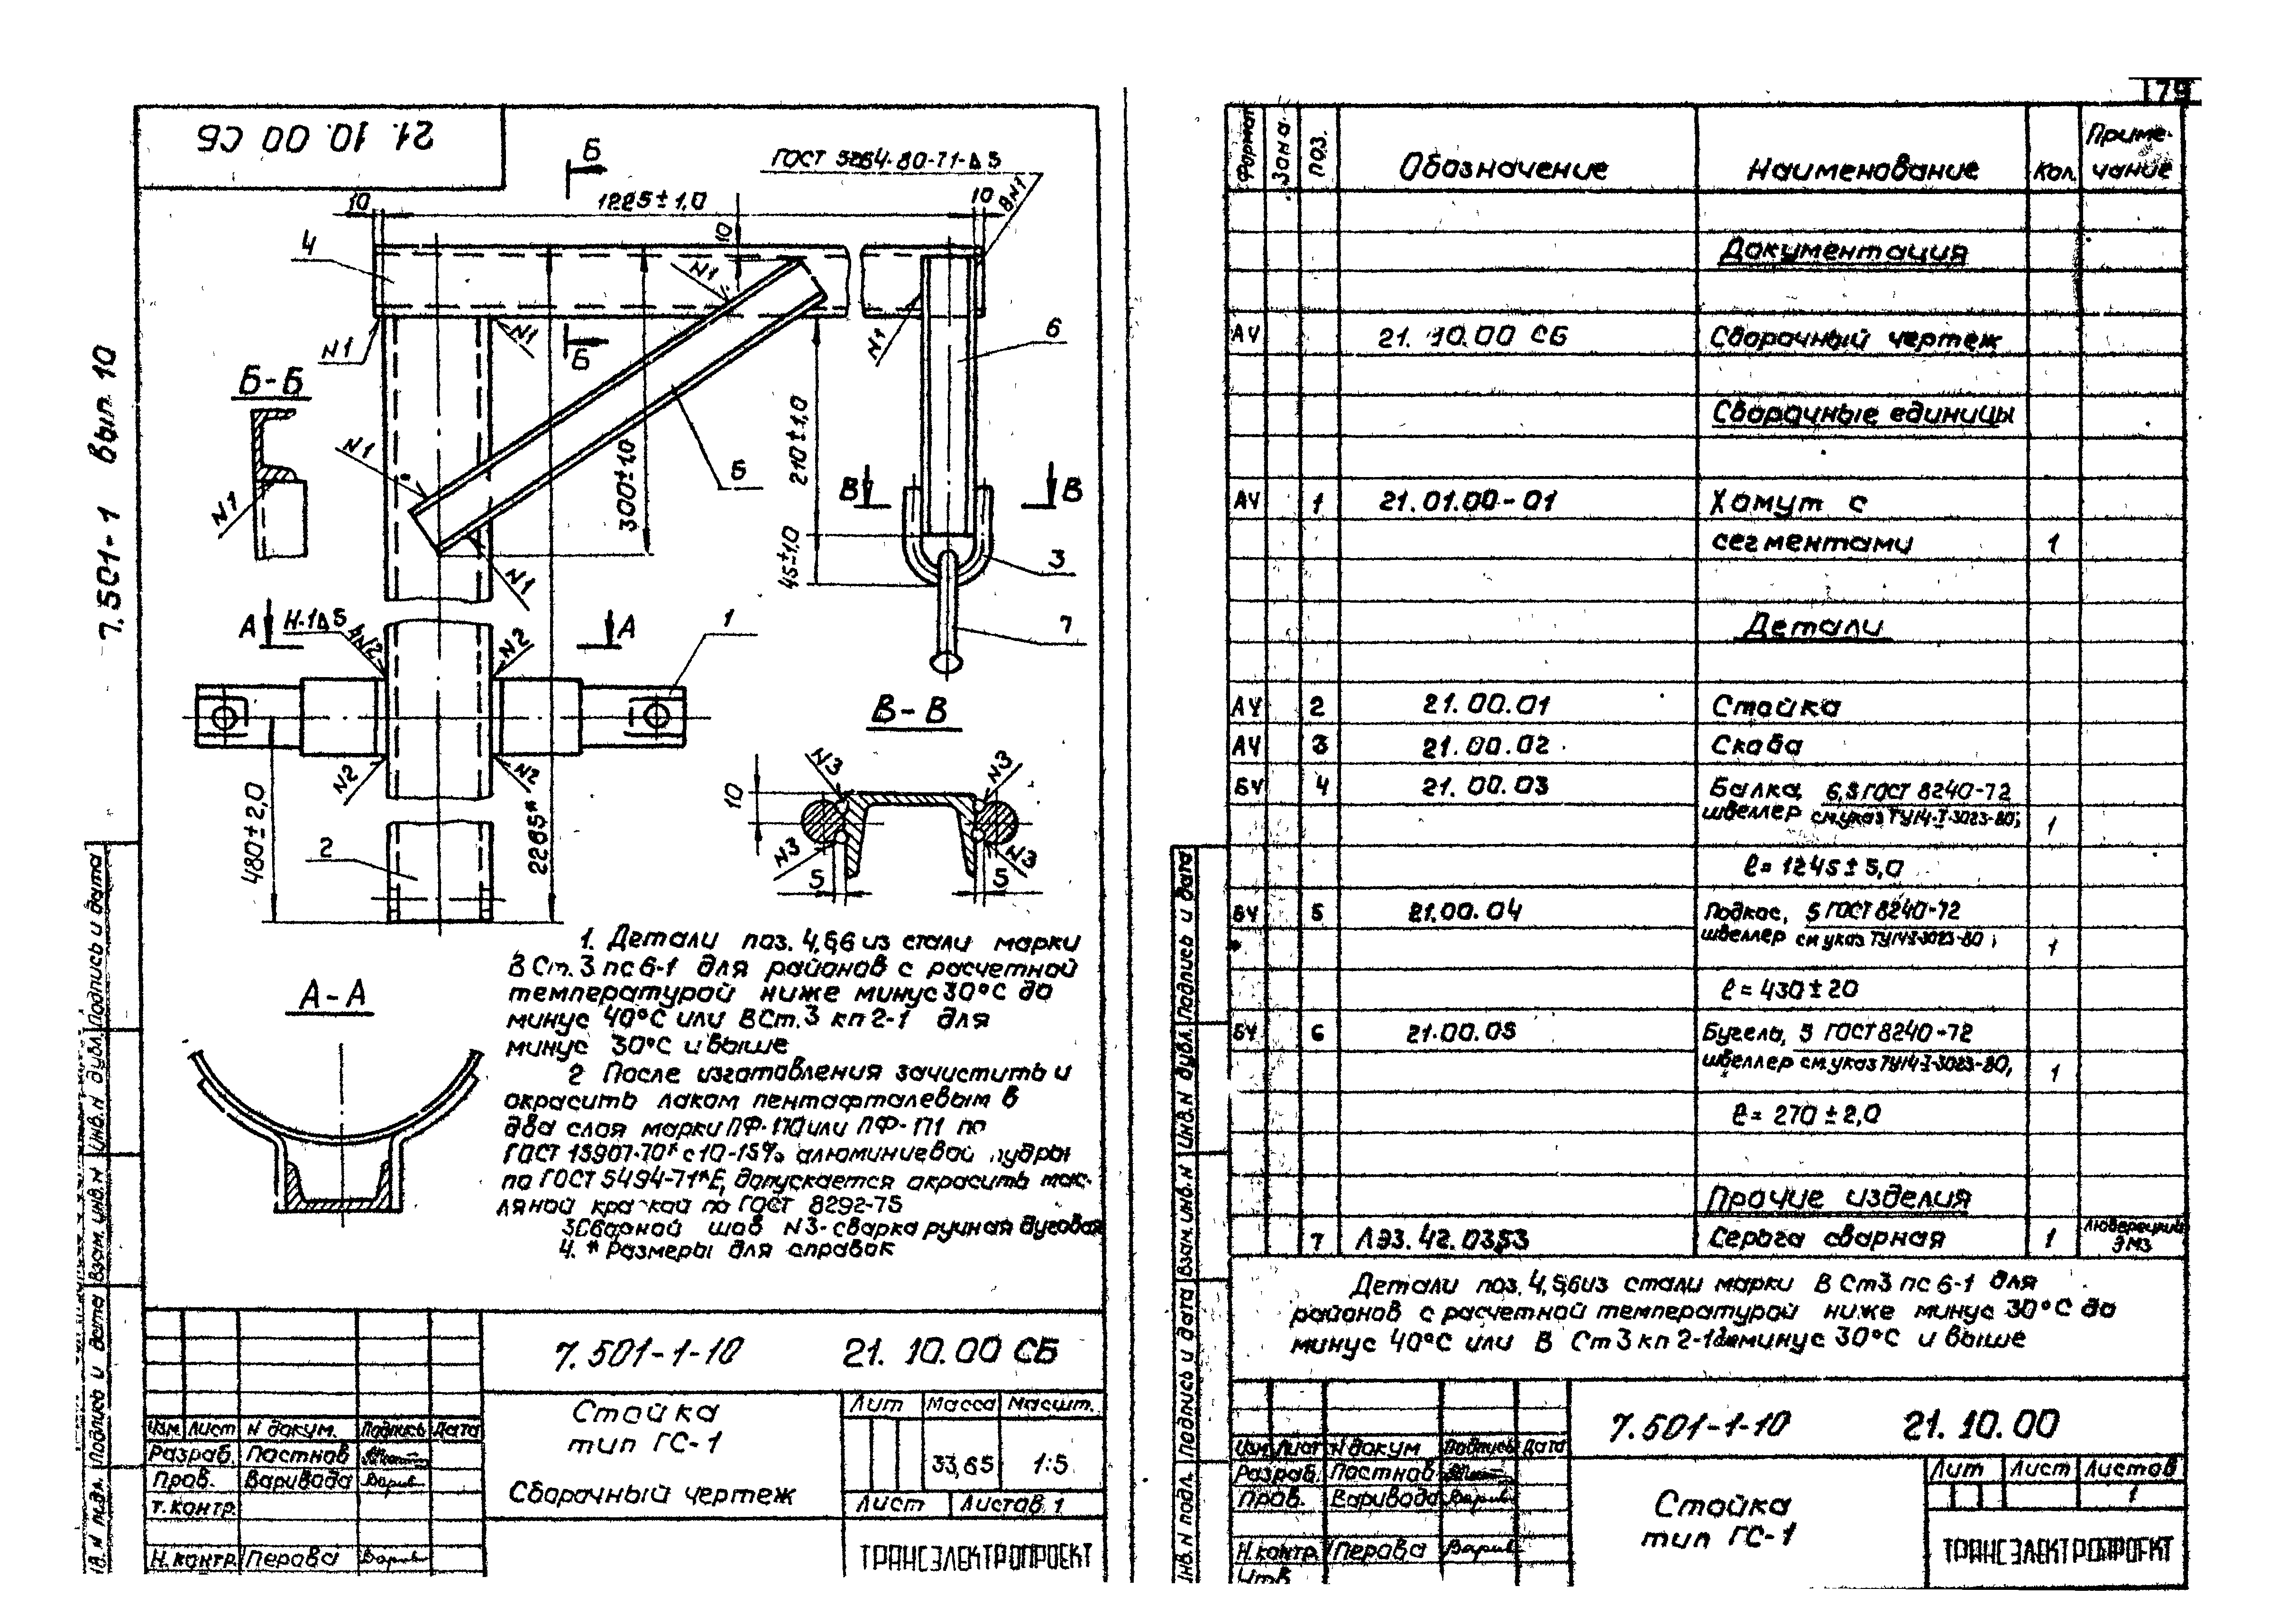 179
21. 10. 00 СБ
7.501-1 вып. 10
Б
ГОСТ 5264-80-Т1-Δ5
10
1225±1,0
10
ВН1
10
4
N1
N1
N1
Б
N1
6
Б-Б
N1
N1
5
300±1,0
210±1,0
В
В
45±1,0
3
N1
А
Н-1Δ5
А
1
7
N2
N2
N2
N2
480±2,0
2265*
2
В-В
N3
N3
10
N3
N3
5
5
А-А
1. Детали поз. 4,5,6 из стали марки
В Ст.3 пс 6-1 для районов с расчетной
температурой ниже минус 30°С до
минус 40°С или ВСт.3 кп 2-1 для
минус 30°С и выше
2 После изготовления зачистить и
окрасить лаком пентафталевым в
два слоя марки ПФ-170 или ПФ-171 по
ГОСТ 15907-70* с 10-15% алюминиевой пудры
по ГОСТ 5494-71*Е, допускается окрасить мас-
ляной краской по ГОСТ 8292-75
3 Сварной шов N3-сварка ручная дуговая
4. * Размеры для справок
7.501-1-10 21. 10.00 СБ
Стойка
тип ГС-1
Сборочный чертеж
Лит Масса Масшт.
33,65 1:5
Лист Листов 1
ТРАНСЭЛЕКТРОПРОЕКТ
Изм Лист N докум. Подпись Дата
Разраб. Постнов
Пров. Варивода
Т. контр.
Н. контр. Перова
Инв. N подл. Подпись и дата Взам. инв. N Инв. N дубл. Подпись и дата
Формат Зона Поз. Обозначение Наименование Кол. Приме-
чание
Документация
АЧ 21. 10.00 СБ Сборочный чертеж
Сборочные единицы
АЧ 1 21.01.00-01 Хомут с
сегментами 1
Детали
АЧ 2 21.00.01 Стойка
АЧ 3 21.00.02 Скоба
БЧ 4 21. 00.03 Балка, 6,5 ГОСТ 8240-72
швеллер см.указ ТУ14-I-3023-80; 1
ℓ= 1245±5,0
БЧ 5 21.00.04 Подкос, 5 ГОСТ 8240-72
* швеллер см.указ ТУ14-I-3023-80; 1
ℓ=430±20
БЧ 6 21.00.05 Бугель, 5 ГОСТ 8240-72
швеллер см.указ ТУ14-I-3023-80, 1
ℓ=270±2,0
Прочие изделия
7 ЛЭЗ. 42.0353 Серьга сварная 1 Люберецкий
ЭМЗ
Детали поз. 4,5,6 из стали марки В Ст3 пс 6-1 для
районов с расчетной температурой ниже минус 30°С до
минус 40°С или В Ст3 кп 2-1 для минус 30°С и выше
7.501-1-10 21. 10.00
Стойка
тип ГС-1
Лит Лист Листов
1
ТРАНСЭЛЕКТРОПРОЕКТ
Изм Лист N докум Подпись Дата
Разраб. Постнов
Пров. Варивода
Н.контр. Перова
Утв
Инв. N подл. Подпись и дата Взам. инв. N Инв. N дубл. Подпись и дата